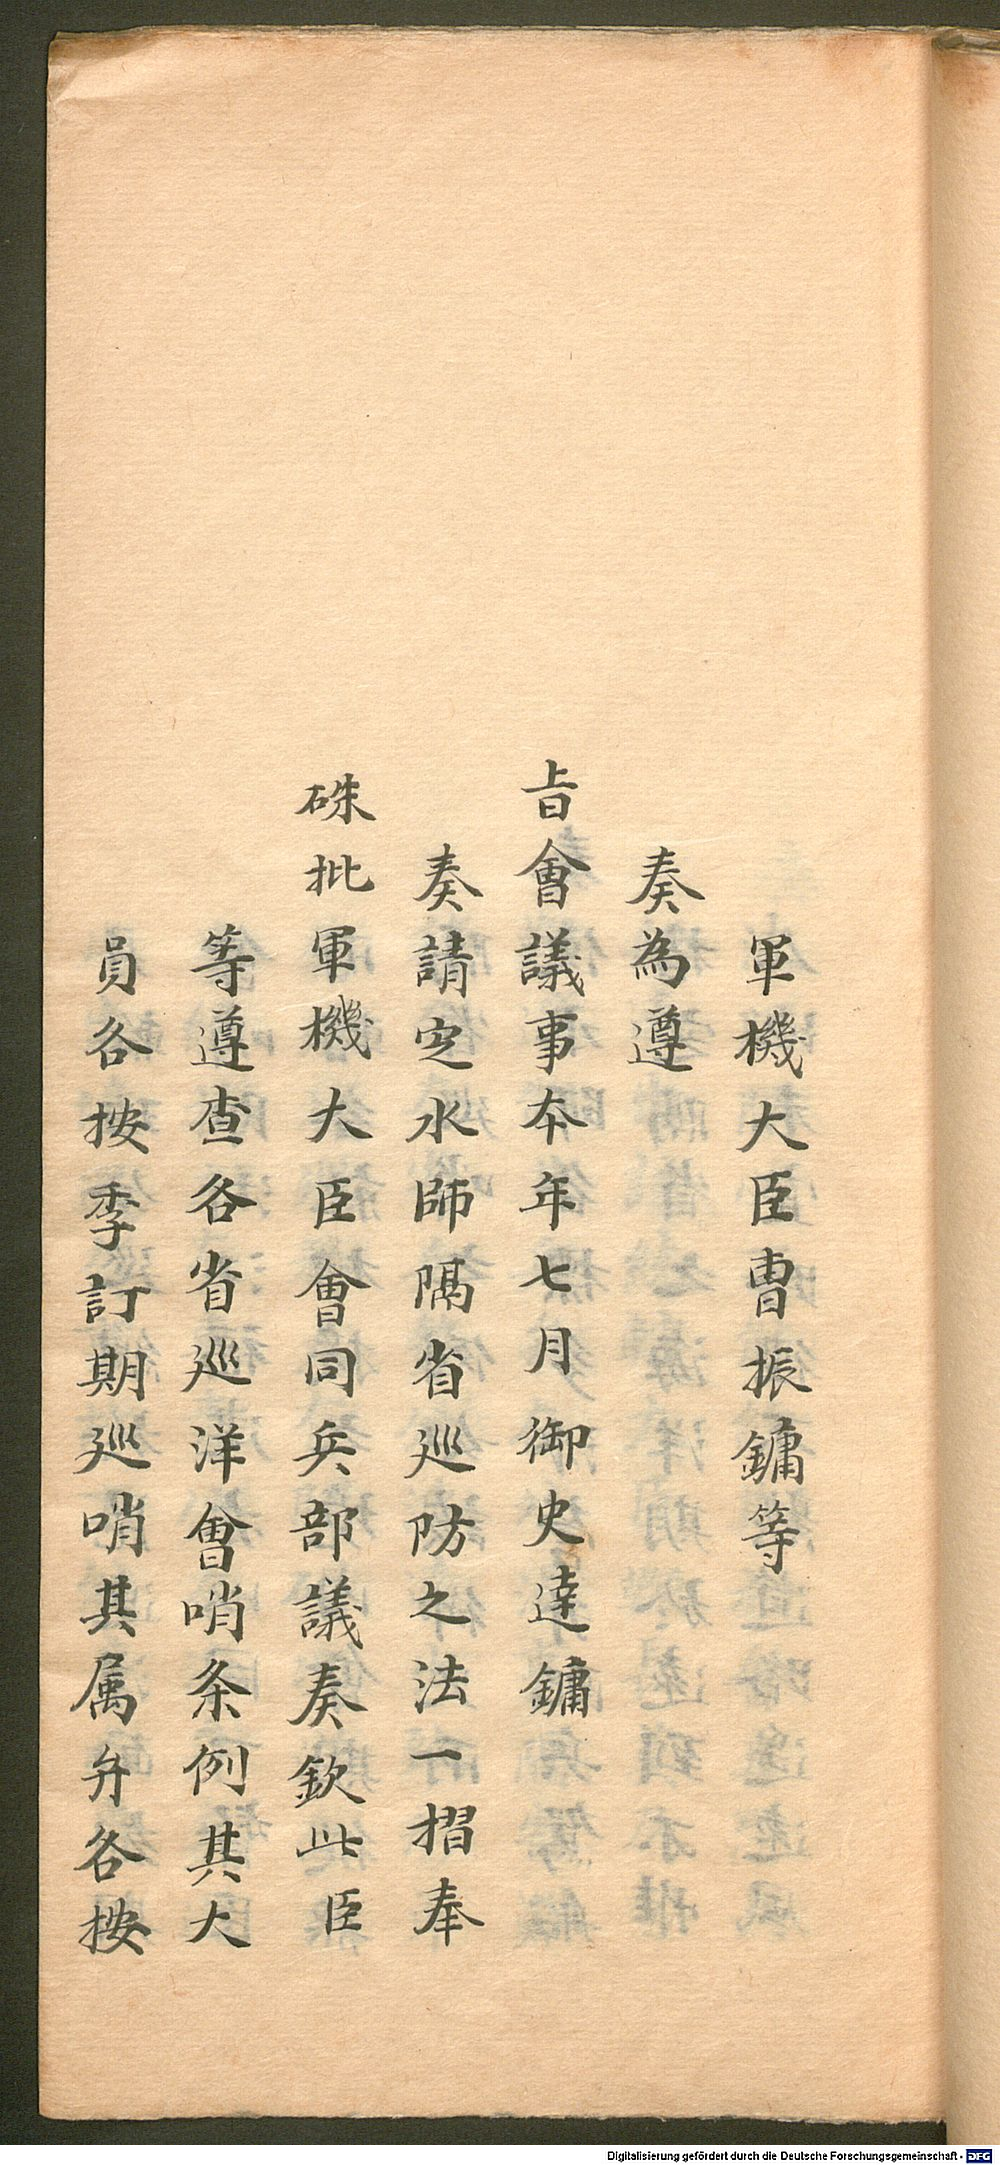 軍機大臣曺振鏞等
奏為遵
㫖會議事本年七月御史達鏞
奏請定水師隔省巡防之法一摺奉
硃批軍機大臣會同兵部議奏欽此臣
等遵查各省巡洋會哨条例其大
員各按季訂期巡哨其属弁各按
Digitalisierung gefördert durch die Deutsche Forschungsgemeinschaft - DFG